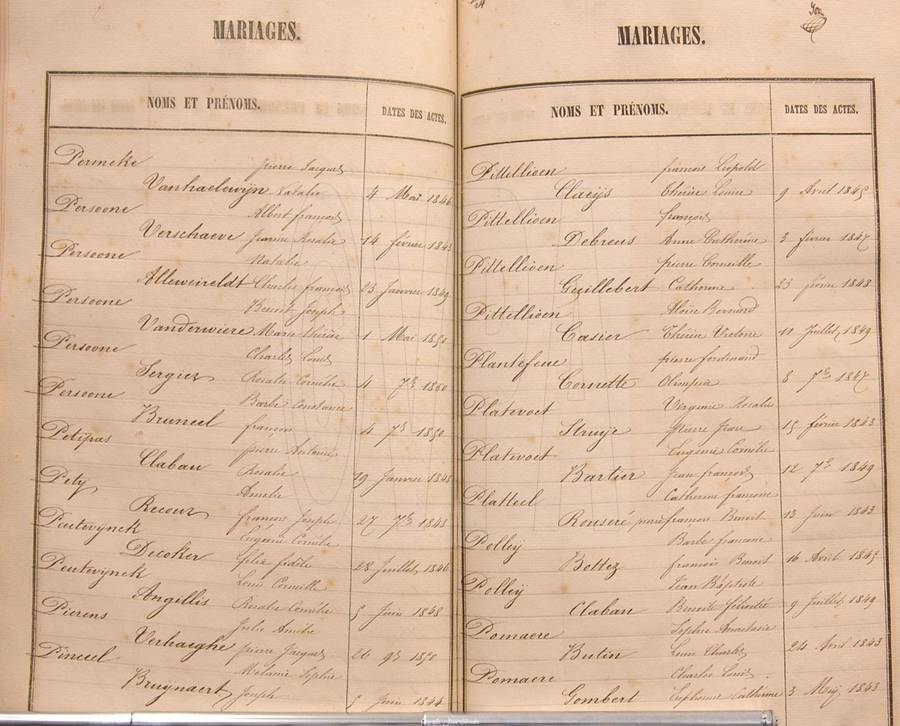 MARIAGES.
NOMS ET PRÉNOMS. DATES DES ACTES.
Permeke pierre Jacques
Vanhaelewijn Natalie 4 Mai 1846
Persoone Albert françois
Verschaeve Jeanne Rosalie 14 février 1843
Persoone Natalie
Alleweireldt Charles françois 23 Janvier 1849
Persoone Benoit Joseph
Vanderwiere Marie thérèse 1 Mai 1850
Persoone Charles Louis
Sergier Rosalie Cornélie 4 7bre 1850
Persoone Barbe Constance
Bruneel françois 4 7bre 1850
Petipas pierre Antoine
Clabau Rosalie 19 Janvier 1848
Pety Amelie
Recour françois Joseph 27 7bre 1848
Peutevijnck Eugenie Cornelie
Decoker felix fidèle 28 Juillet 1846
Peutevijnck Louis Corneille
Angillis Rosalie Cornélie 5 Juin 1848
Pierens Julie Amélie
Verhaeghe pierre Jacques 26 9re 1850
Pincel Melanie Sophie
Bruijnaert Joseph 5 Juin 1844
MARIAGES.
NOMS ET PRÉNOMS. DATES DES ACTES.
Pittellioen françois Léopold
Claeijs Thérèse Louise 9 Avril 1845
Pittellioen françois
Debreus Anne Catherine 3 février 1847
Pittellioen pierre Corneille
Guillebert Catherine 23 février 1848
Pittellioen Aloise Bernard
Casier Thérèse Victoire 11 Juillet 1849
Plantefeve pierre ferdinand
Cornette Olimpia 8 7bre 1847
Platevoet Virginie Rosalie
Struije pierre Jean 15 février 1843
Platevoet Eugenie Cornélie
Bartier Jean françois 12 7bre 1849
Platteel Catherine françoise
Rouseré pierre françois Benoit 13 Juin 1843
Polleij Barbe françoise
Bottez françois Benoit 16 Avril 1845
Polleij Jean Baptiste
Clabau Benoite félicité 9 Juillet 1849
Pomaere Sophie Anastasie
Butin Louis Charles 24 Avril 1843
Pomaere Charles Louis
Gombert Euphonie Catherine 3 Mai 1843